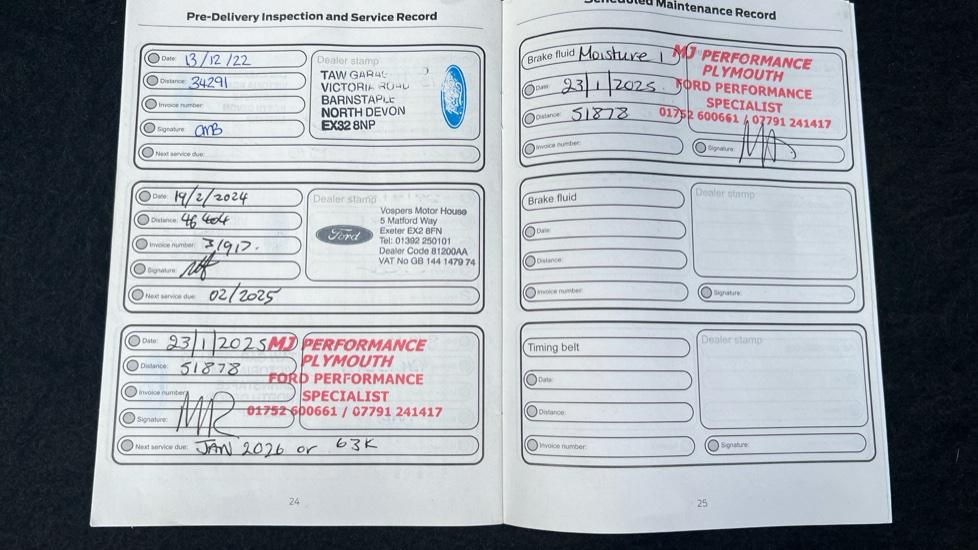 Pre-Delivery Inspection and Service Record
Date: 13/12/22
Distance: 34291
Invoice number:
Signature: AMB
Next service due:
Dealer stamp
TAW
VICTORIA ROAD
BARNSTAPLE
NORTH DEVON
EX32 8NP
Ford
Date: 19/2/2024
Distance: 46 404
Invoice number: 31917.
Signature:
Next service due: 02/2025
Dealer stamp
Ford
Vospers Motor House
5 Matford Way
Exeter EX2 8FN
Tel: 01392 250101
Dealer Code 81200AA
VAT No GB 144 1479 74
Date: 23/1/2025
Distance: 51878
Invoice number:
Signature: MR
Next service due: JAN 2026 or 63K
MJ PERFORMANCE
PLYMOUTH
FORD PERFORMANCE
SPECIALIST
01752 600661 / 07791 241417
24
Scheduled Maintenance Record
Brake fluid Moisture
Date: 23/1/2025.
Distance: 51878
Invoice number:
MJ PERFORMANCE
PLYMOUTH
FORD PERFORMANCE
SPECIALIST
01752 600661 / 07791 241417
Signature:
Brake fluid
Date:
Distance:
Invoice number:
Dealer stamp
Signature:
Timing belt
Date:
Distance:
Invoice number:
Dealer stamp
Signature:
25